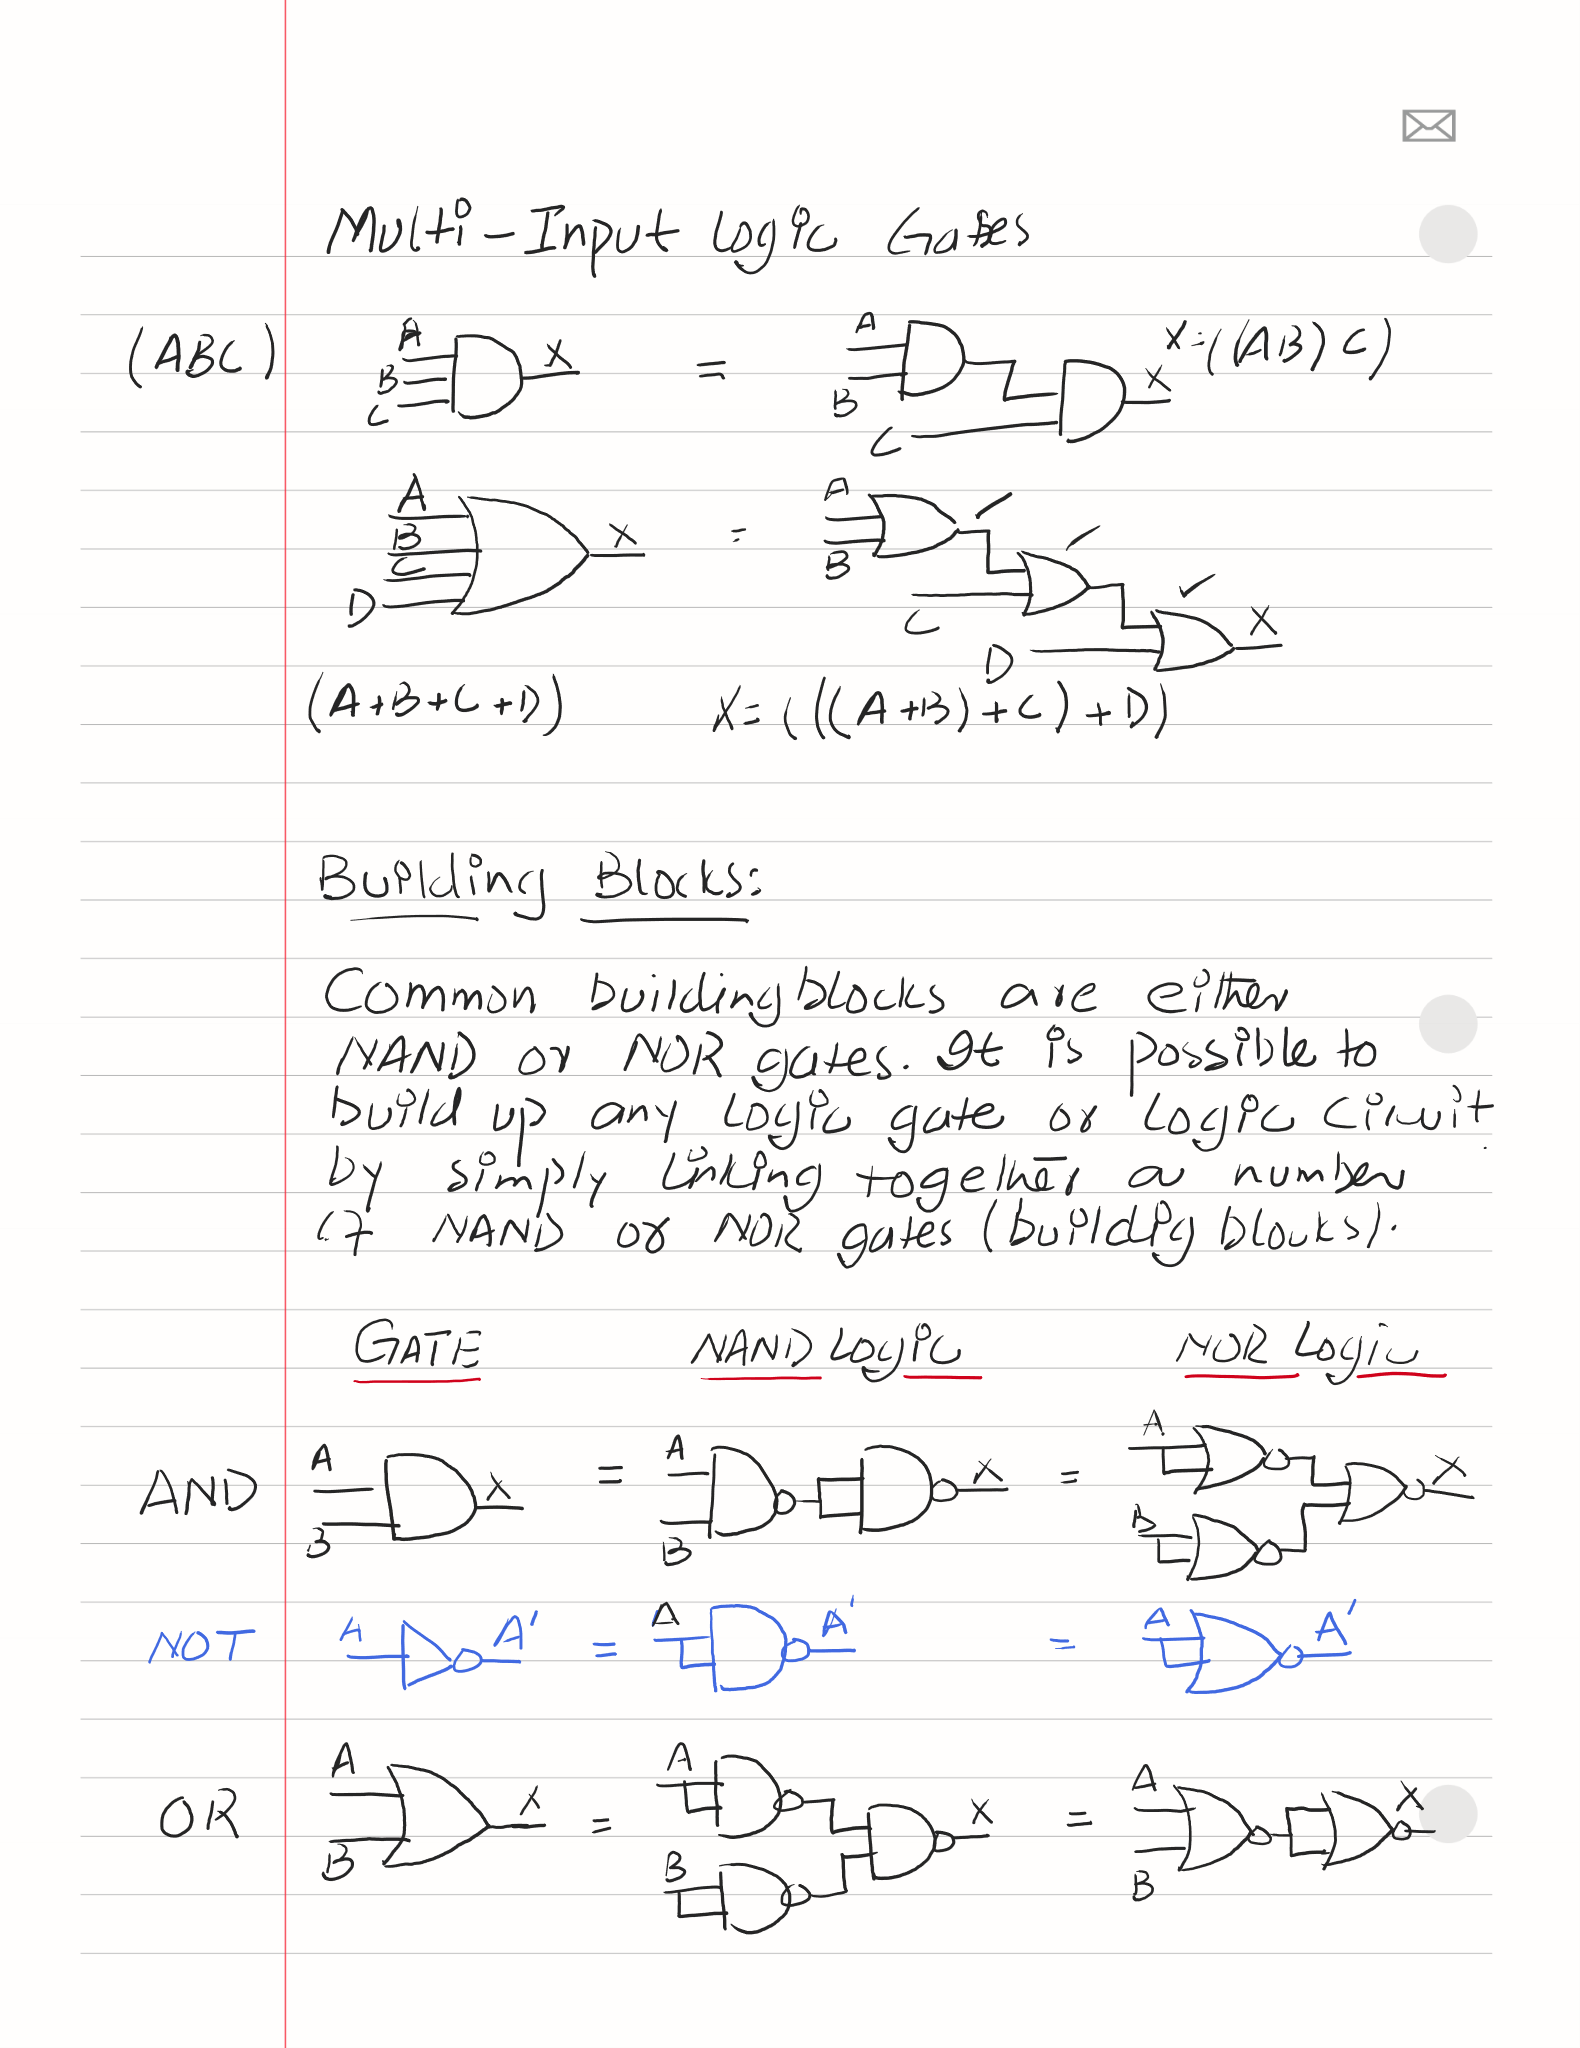 Multi-Input Logic Gates
(ABC) A B C X = A B C X X=((AB)C)
A B C D X = A B C D X
(A+B+C+D) X=(((A+B)+C)+D)
Building Blocks:
Common building blocks are either
NAND or NOR gates. It is possible to
build up any Logic gate or Logic Circuit
by simply linking together a number
of NAND or NOR gates (buildig blocks).
GATE NAND Logic NOR Logic
AND A B X = A B X = A B X
NOT A A' = A A' = A A'
OR A B X = A B X = A B X